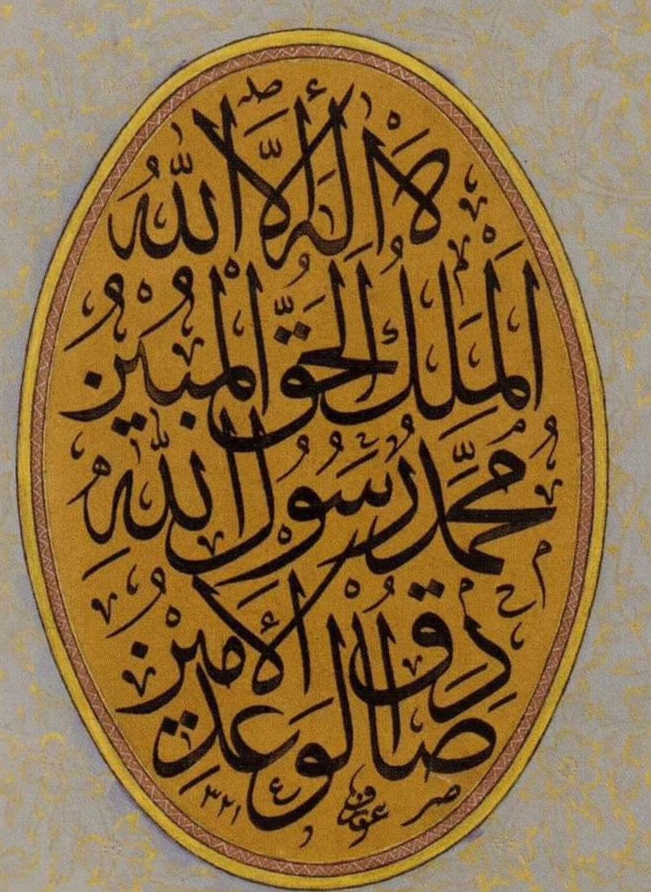 لا اله الا الله
الملك الحق المبين
محمد رسول الله
صادق الوعد الامين